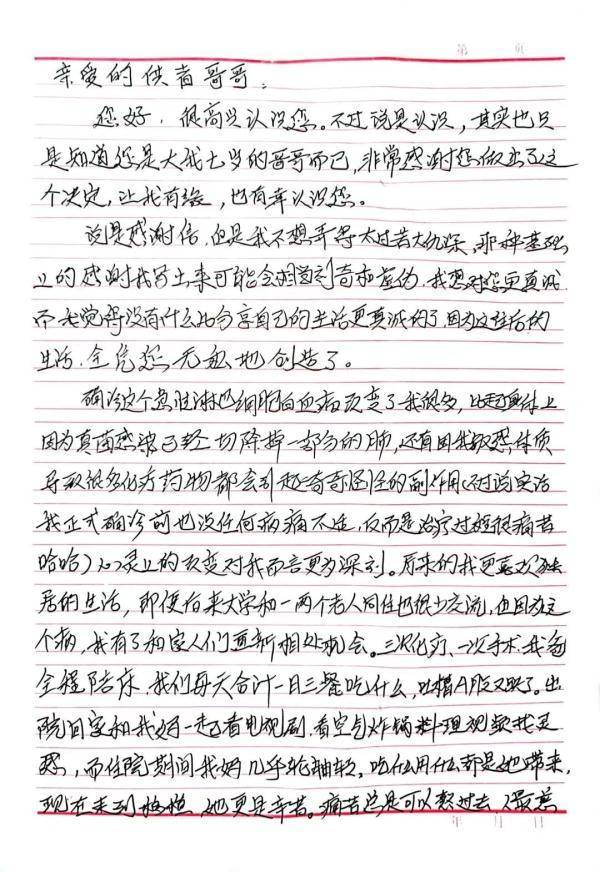 第 页
亲爱的供者哥哥:
您好,很高兴认识您。不过说是认识,其实也只
是知道您是大我七岁的哥哥而已,非常感谢您做出了这
个决定,让我有缘,也有幸认识您。
说是感谢信,但是我不想弄得太过苦大仇深,那种基础
上的感谢我写出来可能会 虚伪,我想对您更真诚
不 觉得没有什么比分享自己的生活更真诚的了,因为这些后的
生活,全凭您无私地创造了。
确诊这个急性淋巴细胞白血病改变了我很多,比起身体上
因为真菌感染已经切除掉一部分的肺,还有因我敏感体质
导致很多化疗药物都会引起奇奇怪怪的副作用(不过说实话
我正式确诊前也没任何病痛不适,反而是治疗过程很痛苦
哈哈)心灵上的改变对我而言更为深刻。原来的我更喜欢独
居的生活,即便后来大学和一两个老人同住也很少交流,也因为这
个病,我有了和家人们重新相处机会。三次化疗、一次手术,我爸
全程陪床,我们每天合计一日三餐吃什么,吐槽A股又跌了。出
院回家和我妈一起看电视剧,看空气炸锅料理视频找灵
感,而住院期间我妈几乎轮轴转,吃什么用什么都是她带来,
现在来到 ,她更是辛苦。痛苦总是可以熬过去,最煎
年 月 日